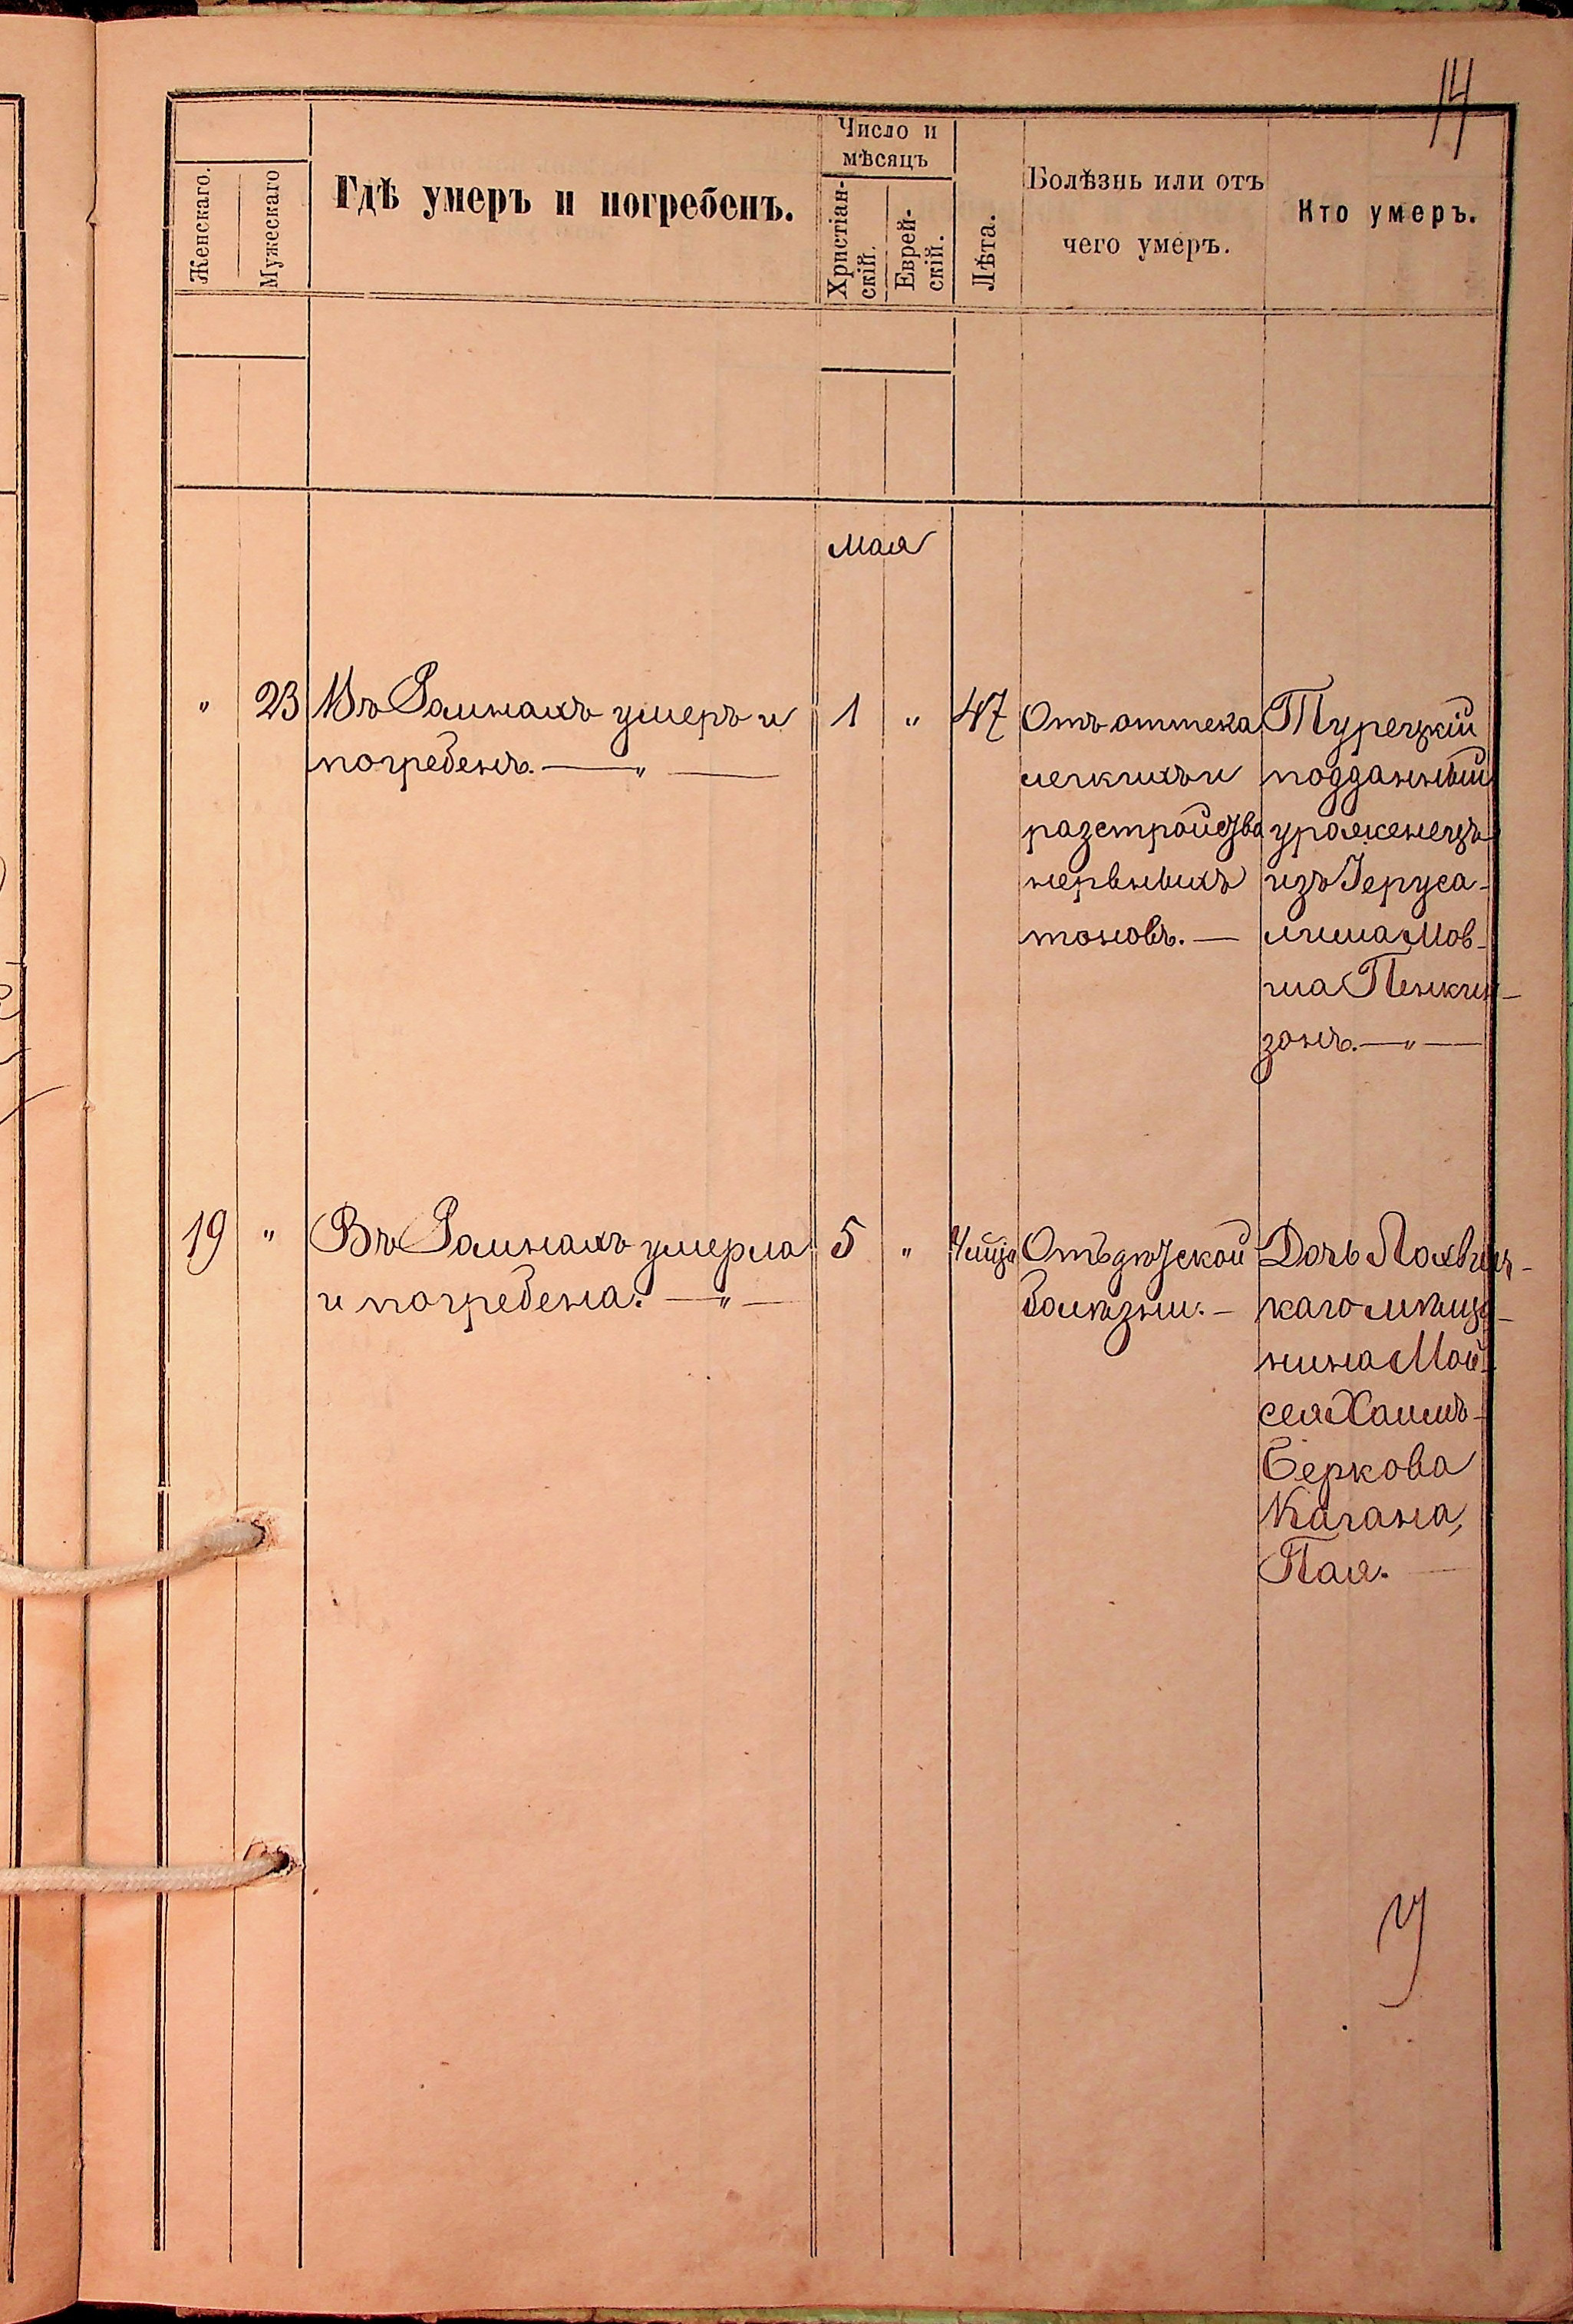 14
Женскаго.
Мужескаго
Гдѣ умеръ и погребенъ.
Число и
мѣсяцъ
Христіан-
скій.
Еврей-
скій.
Лѣта.
Болѣзнь или отъ
чего умеръ.
Кто умеръ.
мая
" 23
Въ Ромнахъ умеръ и
погребенъ. — " —
1 " 47
Отъ оттека
легкихъ и
разстройства
нервныхъ
тоновъ. —
Турецкій
подданный
уроженецъ
изъ Іеруса-
лима Мов-
ша Пинкин-
зонъ. — " —
19 "
Въ Ромнахъ умерла
и погребена. — " —
5 "
Отъ дѣтской
болѣзни. —
Дочь Лохвиц-
каго мѣща-
нина Мои-
сея Хаимъ-
Беркова
Кагана,
Пая. —